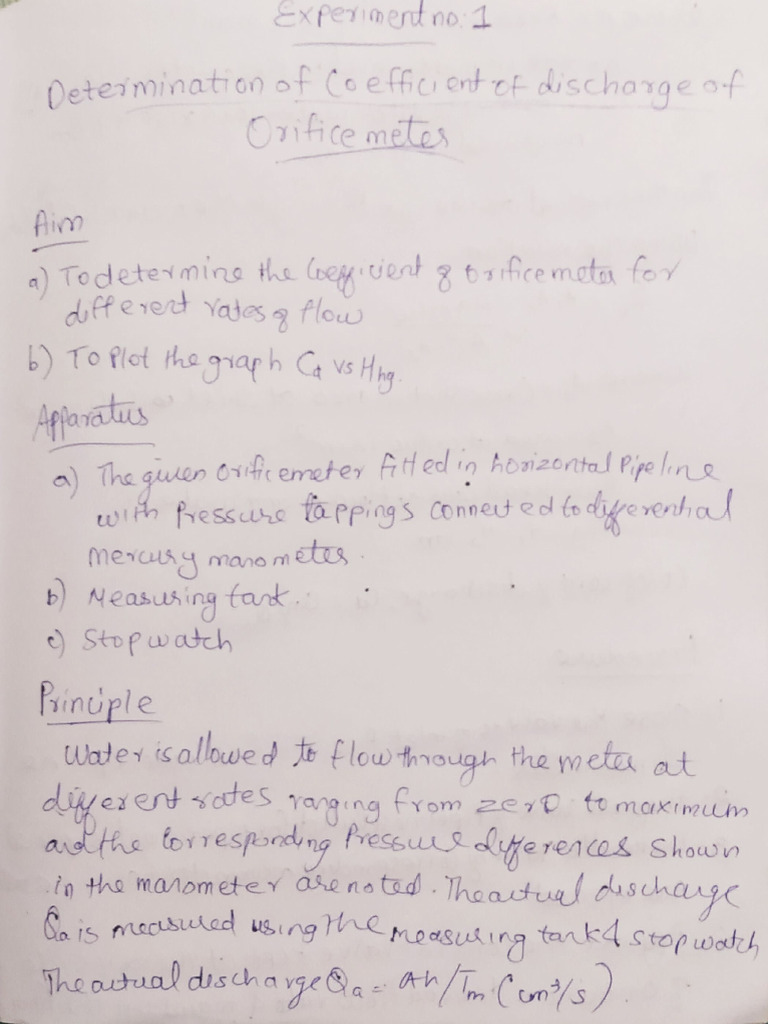 Experiment no. 1
Determination of Coefficient of discharge of
Orifice meter
Aim
a) To determine the Coefficient of orificemeter for
different rates of flow
b) To Plot the graph Cd vs Hhg.
Apparatus
a) The given orificemeter fitted in horizontal Pipeline
with Pressure tappings connected to differential
mercury manometer.
b) Measuring tank.
c) Stopwatch
Principle
Water is allowed to flow through the meter at
different rates ranging from zero to maximum
and the Corresponding Pressure differences shown
in the manometer are noted. The actual discharge
Qa is measured using the measuring tank & stop watch
The actual discharge Qa = Ah/Tm (cm³/s).